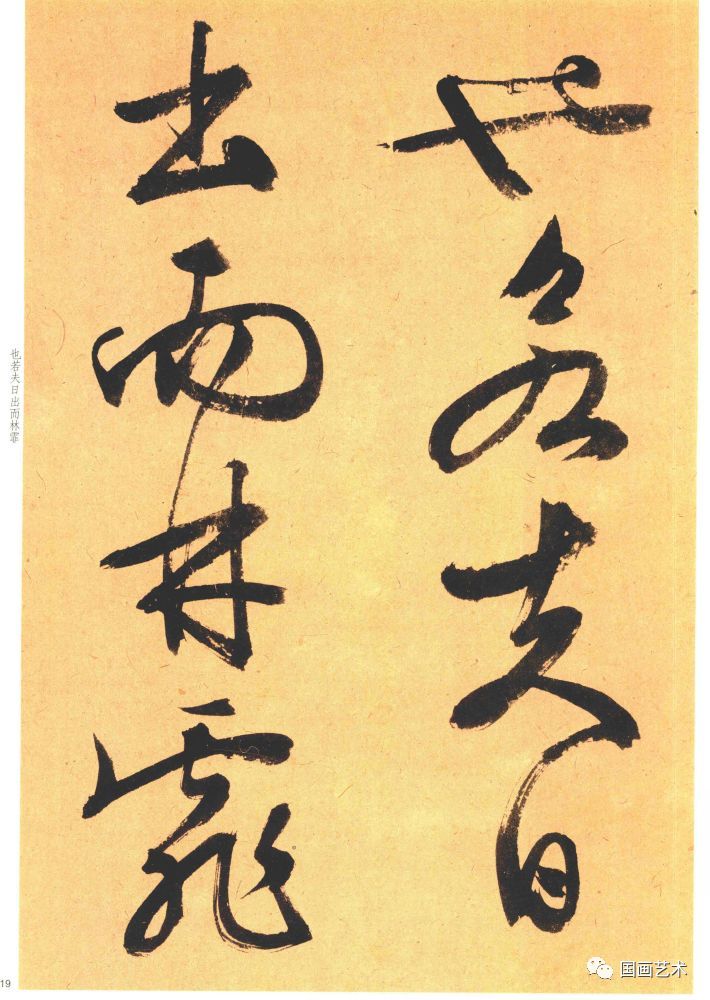 也若夫日
出而林霏
也若夫日出而林霏
19
国画艺术